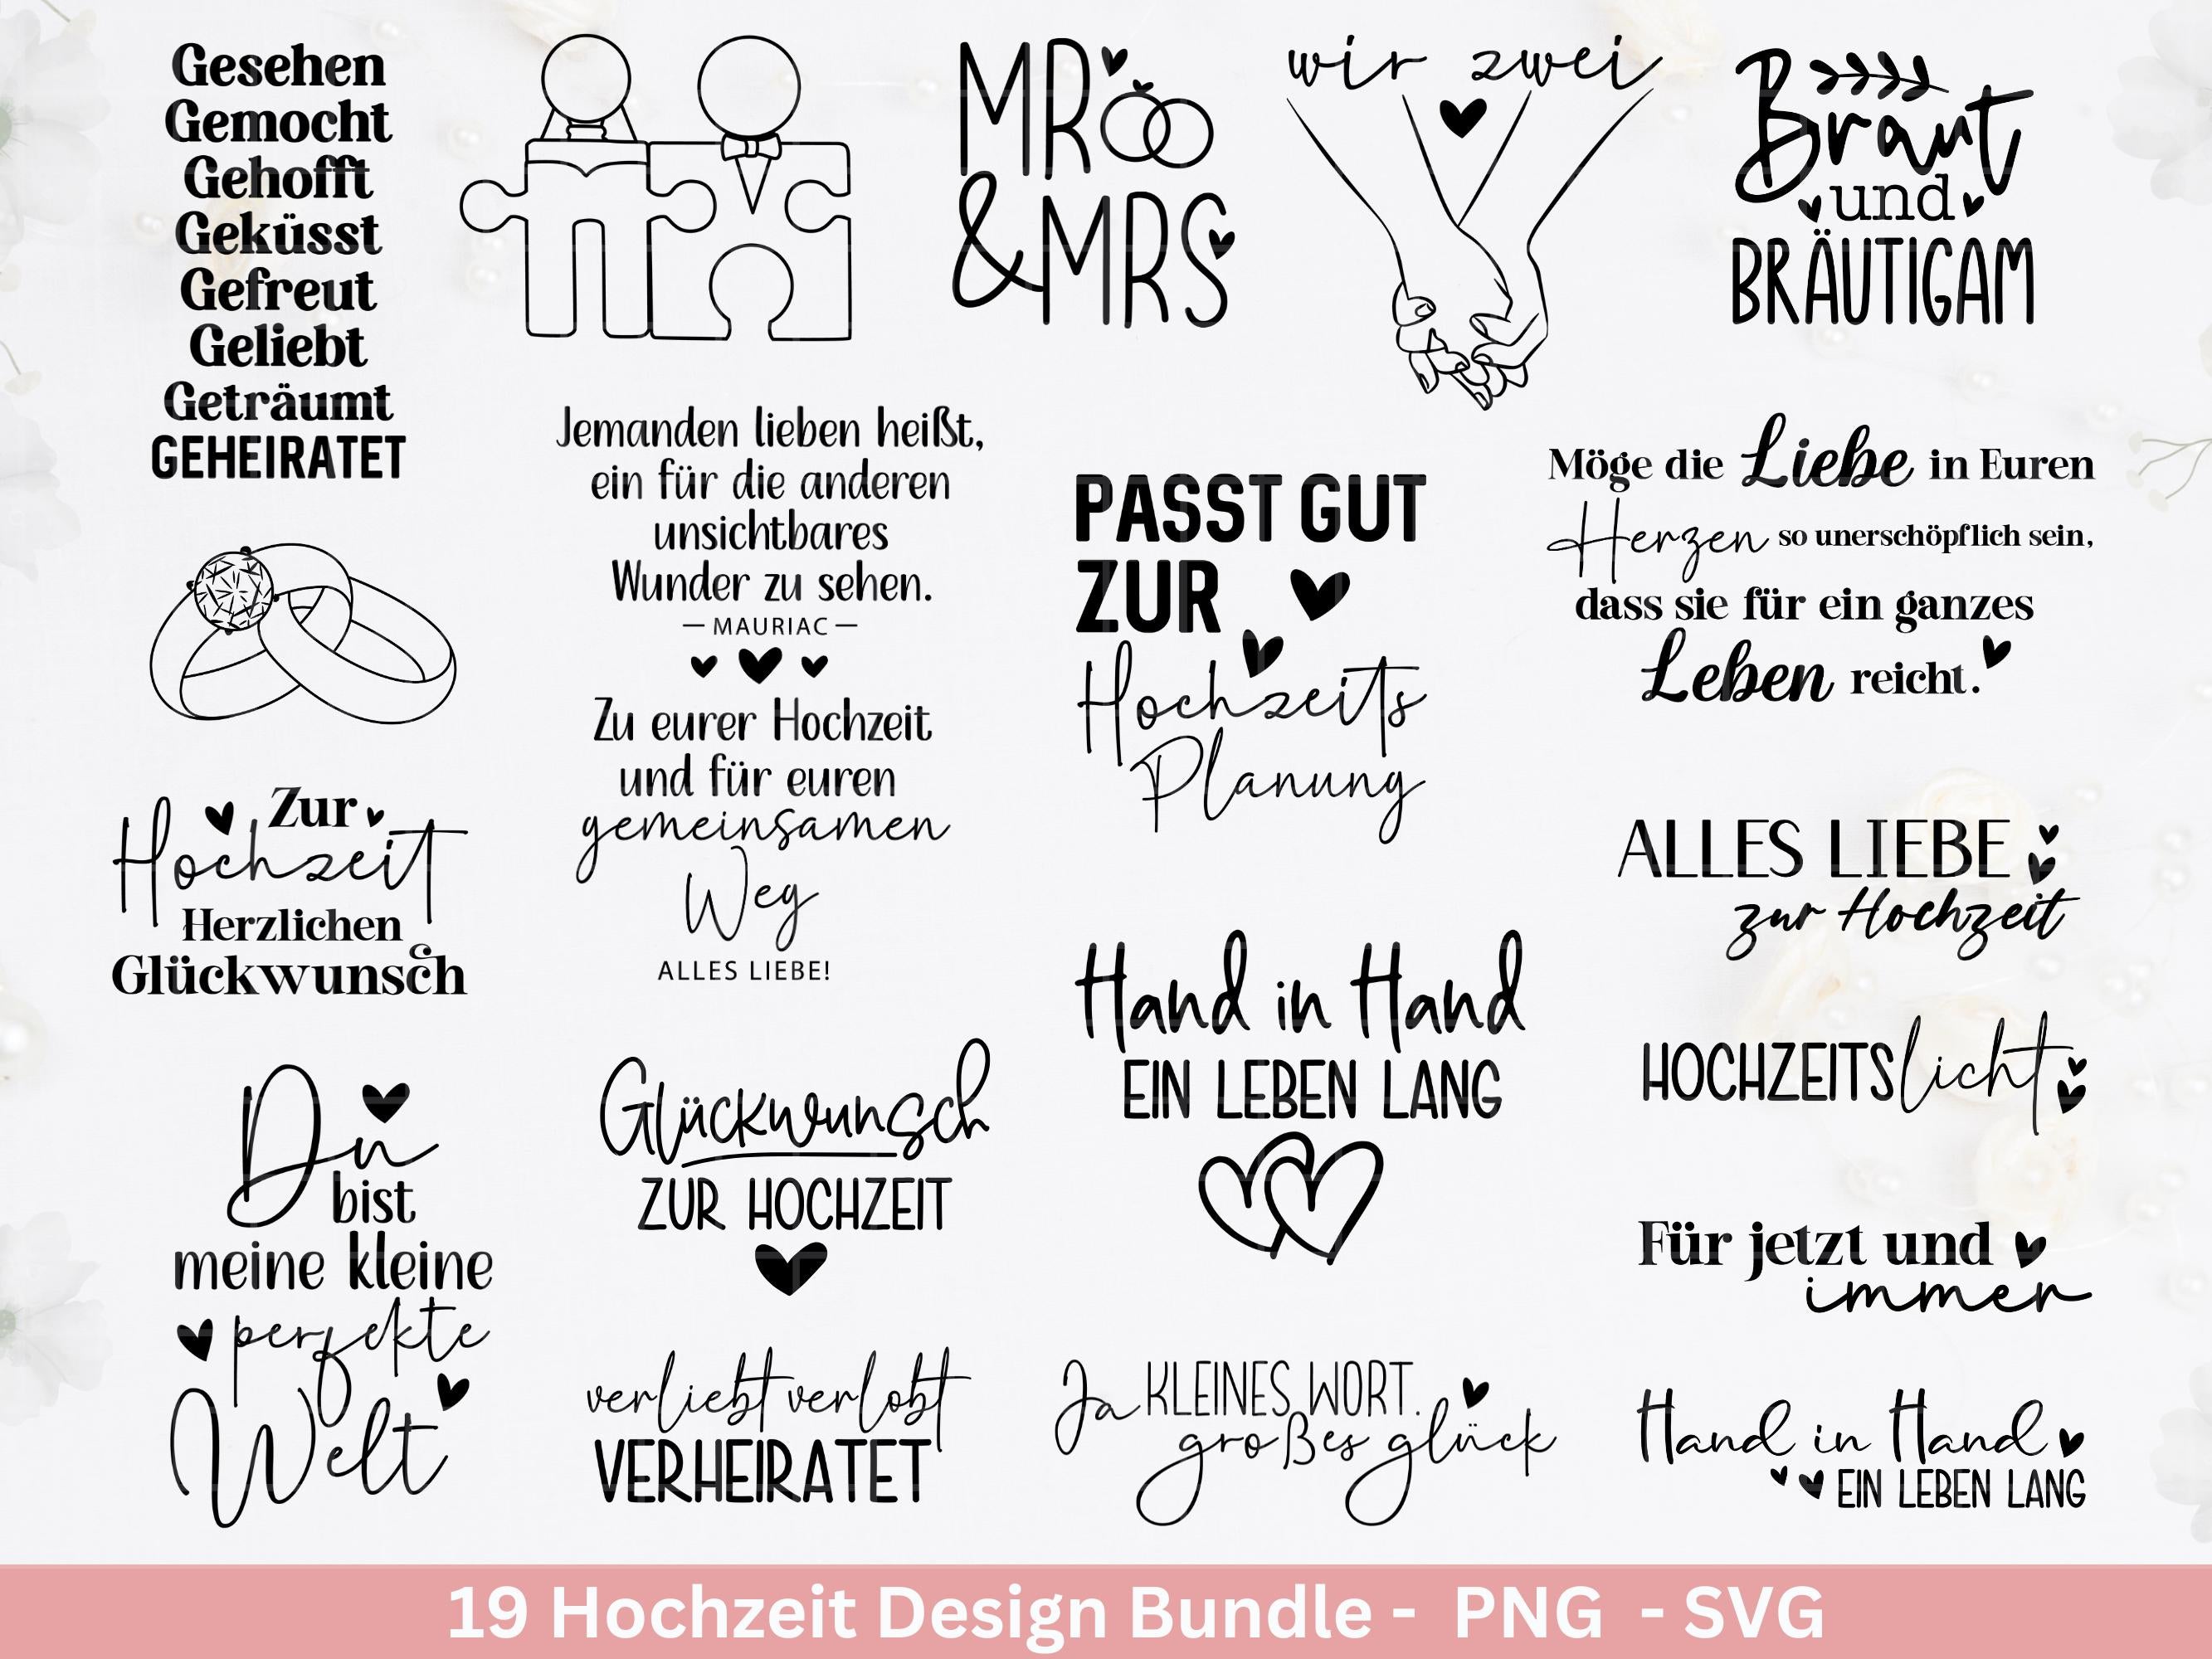 Gesehen
Gemocht
Gehofft
Geküsst
Gefreut
Geliebt
Geträumt
GEHEIRATET
MR
& MRS
wir zwei
Braut
und
BRÄUTIGAM
Jemanden lieben heißt,
ein für die anderen
unsichtbares
Wunder zu sehen.
— MAURIAC —
Zu eurer Hochzeit
und für euren
gemeinsamen
Weg
ALLES LIEBE!
PASST GUT
ZUR
Hochzeits
Planung
Möge die Liebe in Euren
Herzen so unerschöpflich sein,
dass sie für ein ganzes
Leben reicht.
Zur
Hochzeit
Herzlichen
Glückwunsch
ALLES LIEBE
zur Hochzeit
Hand in Hand
EIN LEBEN LANG
HOCHZEITSlicht
Du
bist
meine kleine
perfekte
Welt
Glückwunsch
ZUR HOCHZEIT
Für jetzt und
immer
verliebt verlobt
VERHEIRATET
Ja KLEINES WORT.
großes glück
Hand in Hand
EIN LEBEN LANG
19 Hochzeit Design Bundle - PNG - SVG